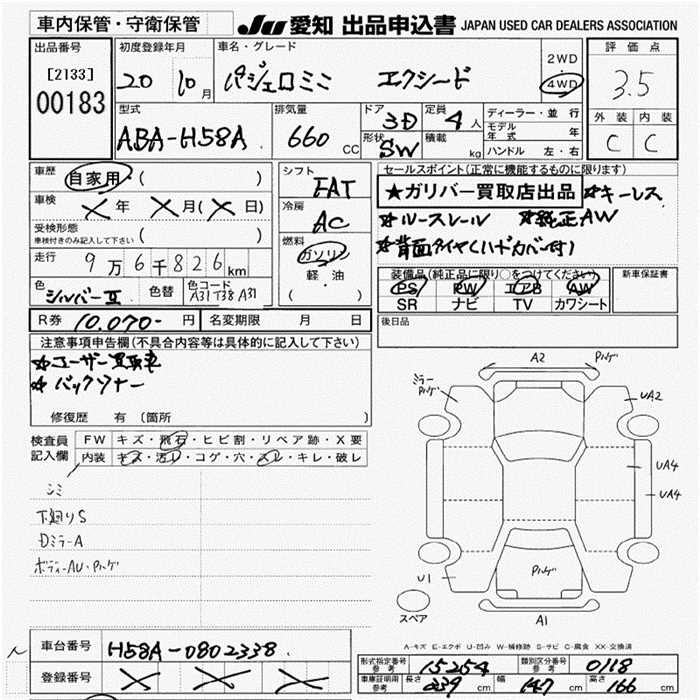 車内保管・守衛保管
JU 愛知 出品申込書 JAPAN USED CAR DEALERS ASSOCIATION
出品番号
[2133]
00183
初度登録年月
20 10月
車名・グレード
パジェロミニ エクシード
2WD
4WD
評価点
3.5
外装 内装
C C
型式
ABA-H58A
排気量
660 CC
ドア
3D
形状
SW
定員
4人
積載
kg
ディーラー・並行
モデル年式 年
ハンドル 左・右
車歴
自家用 ( )
車検
× 年 × 月 (× 日)
受検形態
車検付きのみ記入して下さい ( )
走行
9万6千826km
色
シルバーII
色替
色コード
A31 T38 A31
シフト
FAT
冷房
AC
燃料
ガソリン
軽・油
( )
セールスポイント(正常に機能するものに限ります)
★ガリバー買取店出品 ☆キーレス
☆ルーフレール ☆純正AW
☆背面タイヤ(ハードカバー付)
装備品(純正品に限り○をつけてください)
PS PW エアB AW
SR ナビ TV カワシート
新車保証書
後日品
R券 10,070- 円
名変期限 月 日
注意事項申告欄(不具合内容等は具体的に記入して下さい)
☆ユーザー買取車
☆バックソナー
修復歴 有 (箇所
検査員
記入欄
FW キズ・飛石・ヒビ割・リペア跡・X要
内装 キズ・汚レ・コゲ・穴・スレ・キレ・破レ
シミ
下廻りS
DミラーA
ボディーAU・Pハゲ
A2 Pハゲ
ミラーPハゲ
UA2
UA4
UA4
U1
Pハゲ
A1
スペア
A-キズ E-エクボ U-凹み W-補修跡 S-サビ C-腐食 XX-交換済
車台番号 H58A-0802338
登録番号 × × ×
型式指定番号
参考
15254
類別区分番号
参考
0118
車庫証明用
参考
長さ 339 cm 幅 147 cm 高さ 166 cm